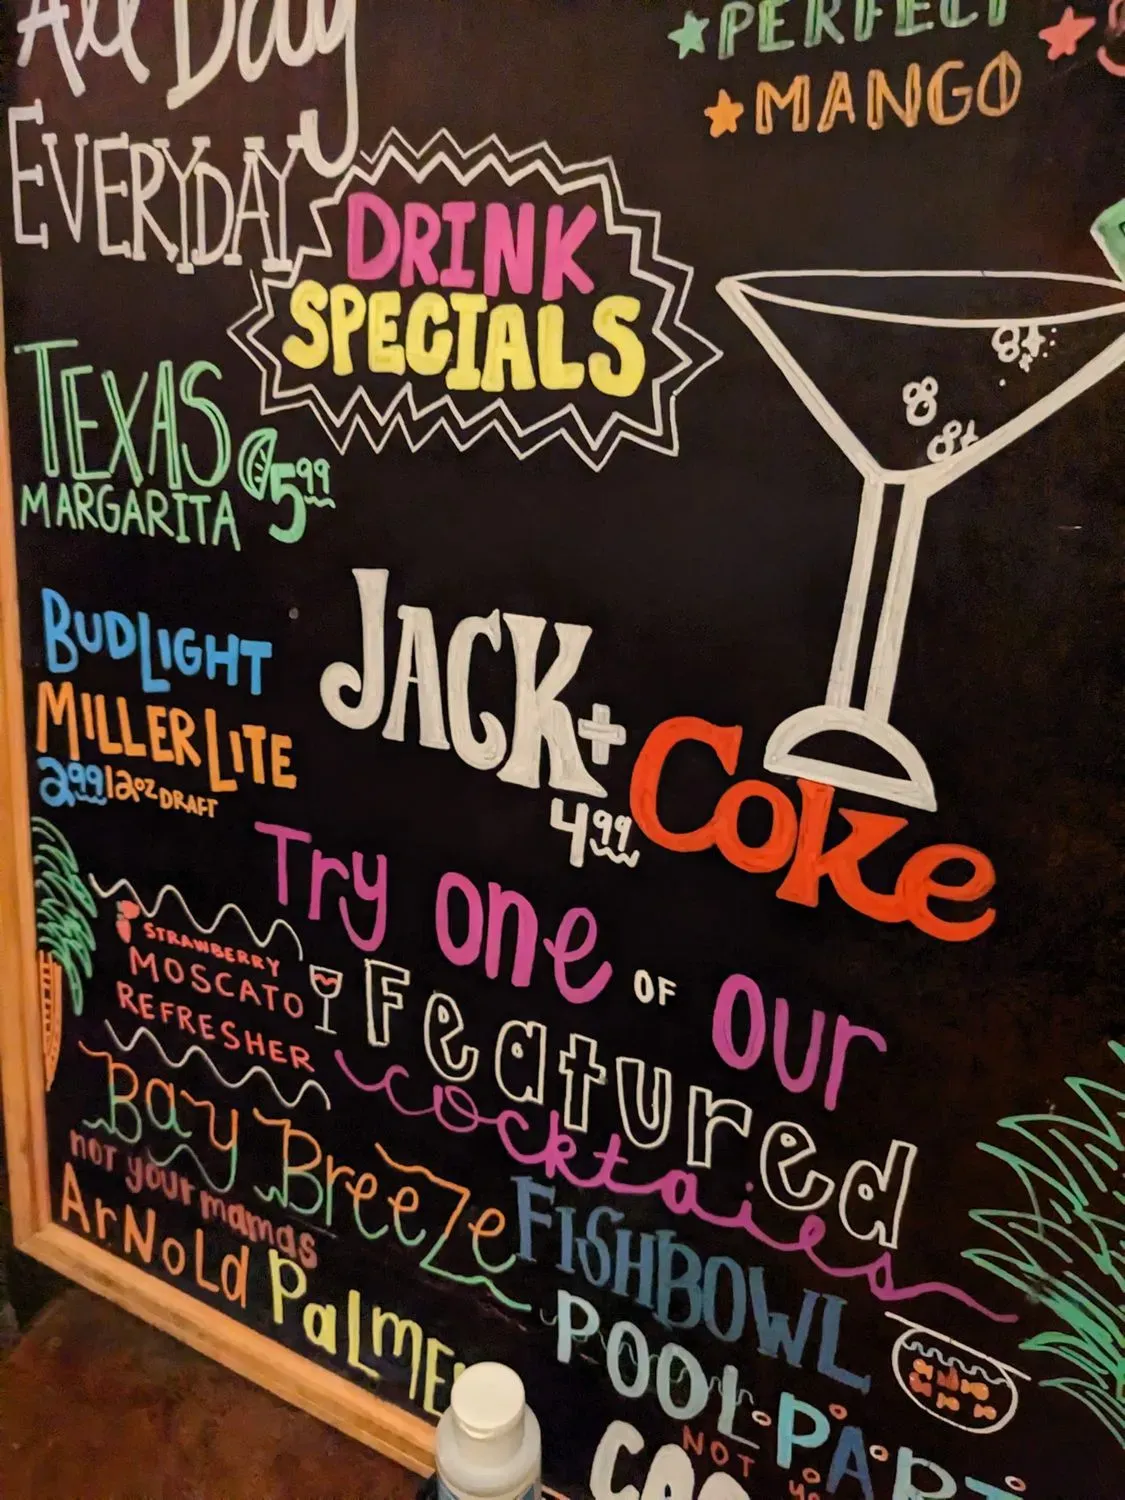 All Day
EVERYDAY
★PERFECT
★MANGO
DRINK
SPECIALS
TEXAS
MARGARITA 5.99
BUD LIGHT
MILLER LITE
2.99 12oz DRAFT
JACK + Coke
4.99
Try one OF our
Featured
cocktails
STRAWBERRY
MOSCATO
REFRESHER
Bay Breeze
not your mamas
ArNoLd PaLmE
FISHBOWL
POOL PART
NOT